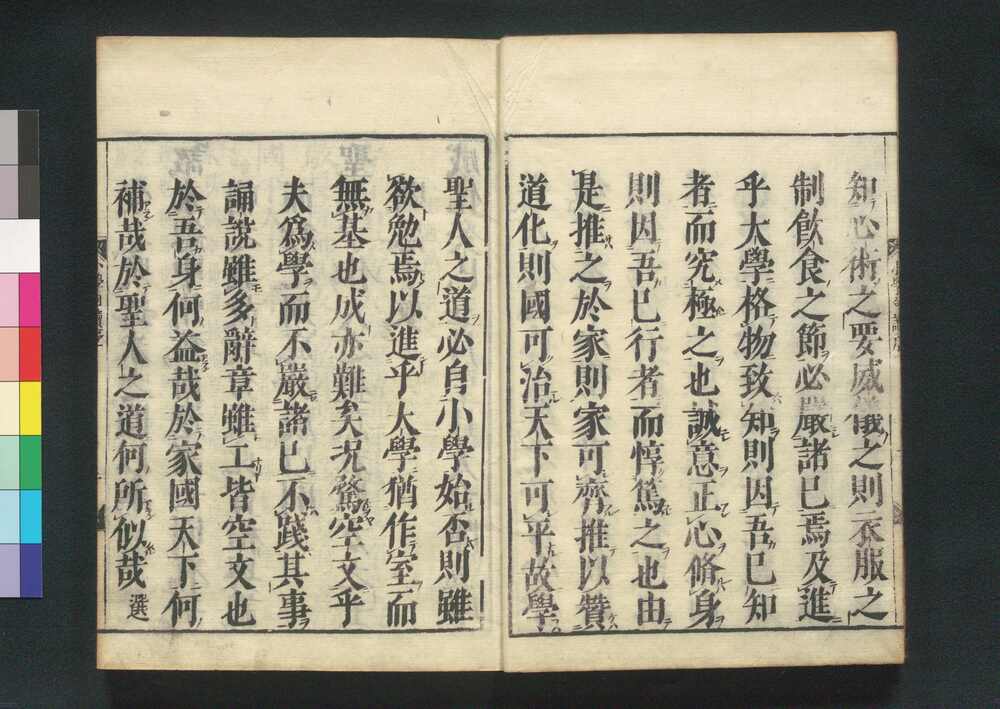 知心術之要威儀之則衣服之
制飮食之節必嚴諸已焉及進
乎大學格物致知則因吾已知
者而究極之也誠意正心脩身
則因吾已行者而惇篤之也由
是推之於家則家可齊推以贊
道化則國可治天下可平故學
聖人之道必自小學始否則雖
欲勉焉以進乎大學猶作室而
無基也成亦難矣况騖空文乎
夫爲學而不嚴諸已不踐其事
誦說雖多辭章雖工皆空文也
於吾身何益哉於家國天下何
補哉於聖人之道何所似哉選